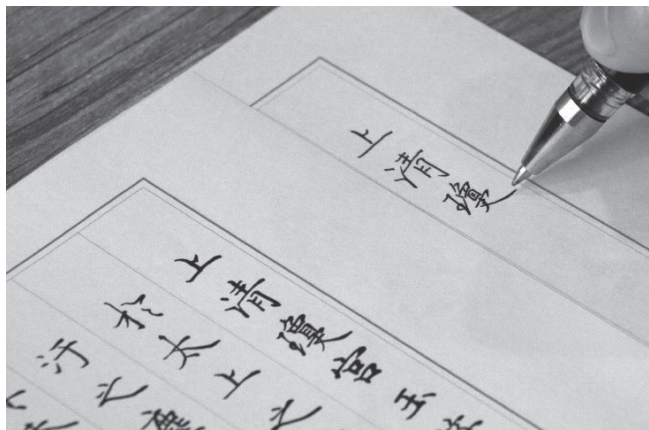 上清瓊
上清瓊宮玉
於太上之
汙之塵